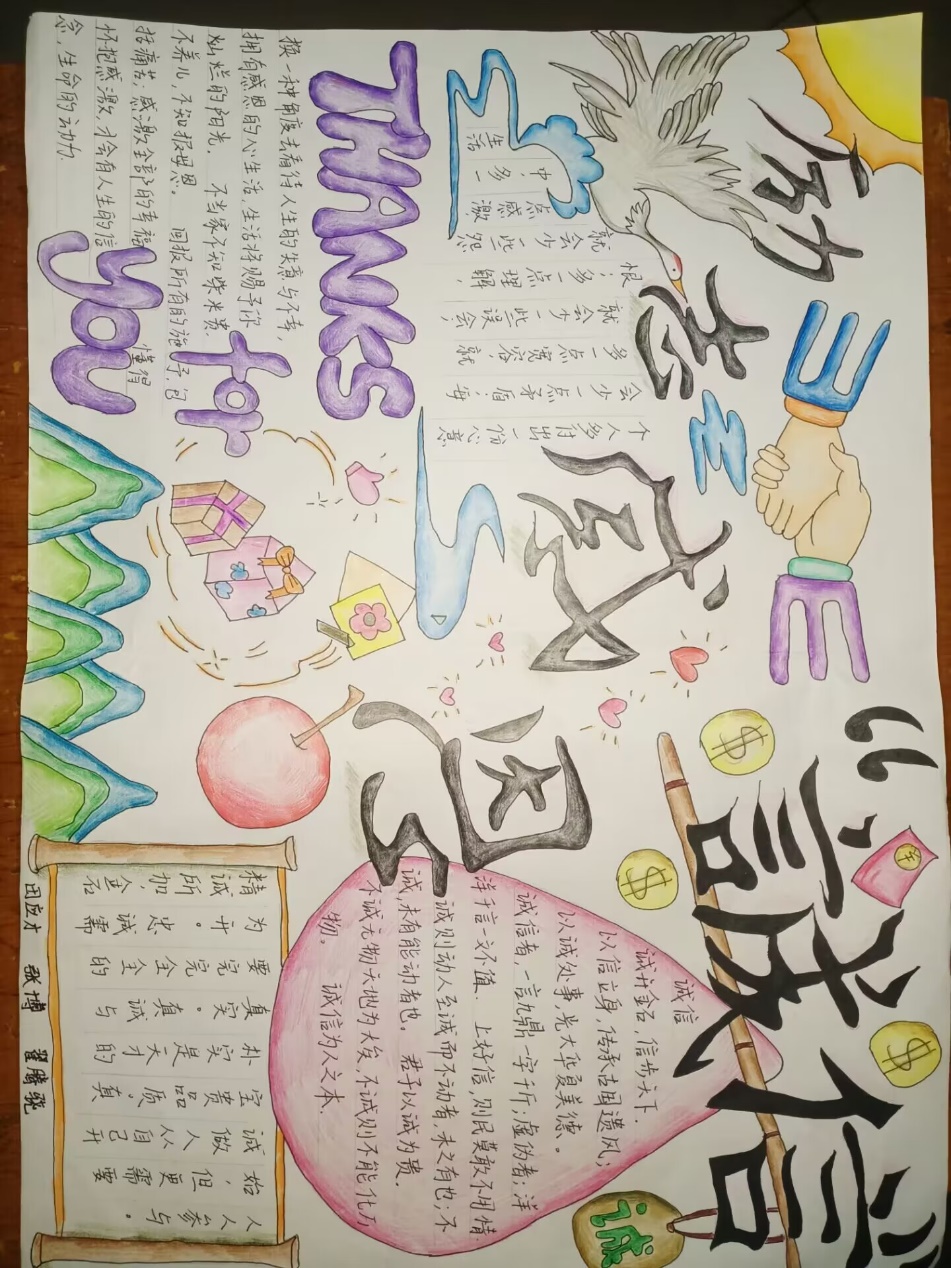 励志
感恩
“诚信”
生活
中,多一
点感激
就会少一些怨
恨;多一点理解,
就会少一些误会,
多一点宽容就
会少一点矛盾;每
个人多付出一份心意
THANKS
for
you
换一种角度去看待人生的失意与不幸,
拥有感恩的心生活,生活将赐予你
灿烂的阳光. 不当家不知柴米贵
不养儿,不知报母恩. 回报所有的施予,包
括痛苦;感激全部的幸福 懂得
怀抱感激,才会有人生的信
念,生命的动力.
诚信
诚开金石,信步天下.
以信立身,传承古国遗风;
以诚处事,光大华夏美德。
诚信者,一言九鼎一字千斤;虚伪者;洋
洋千言一文不值. 上好信,则民莫敢不用情
诚则动人至诚而不动者,未之有也;不
诚,未有能动者也。 君子以诚为贵.
不诚无物天地为大矣,不诚则不能化万
物。 诚信为人之本.
精诚所加,金石
为开。忠诚需
要完完全全的
真实。真诚与
朴实是天才的
宝贵品质。真
诚做人从自己开
始,但更需要
人人参与。
诚
$
$
$
田应才 张博